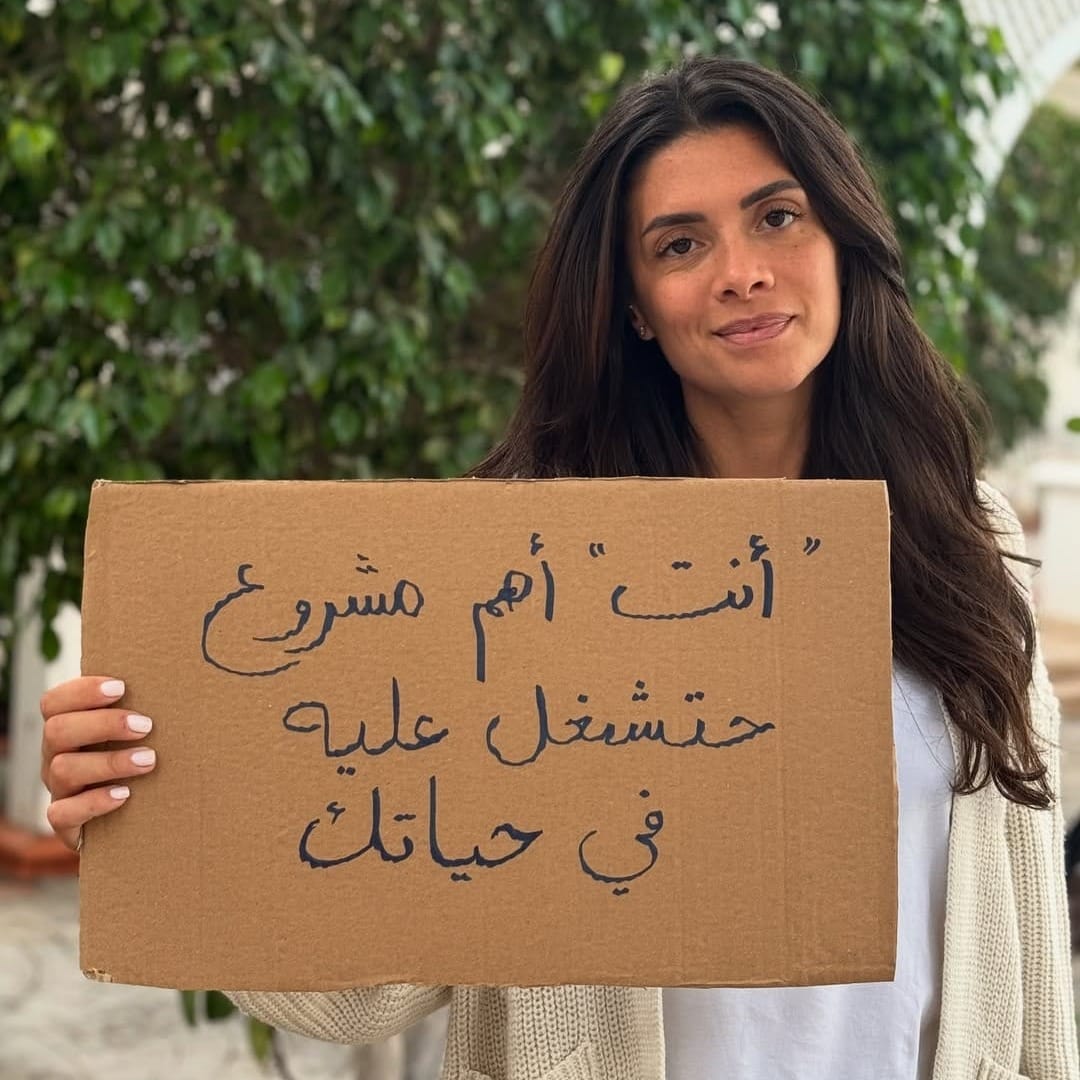 "أنت" أهم مشروع
حتشغل عليه
في حياتك